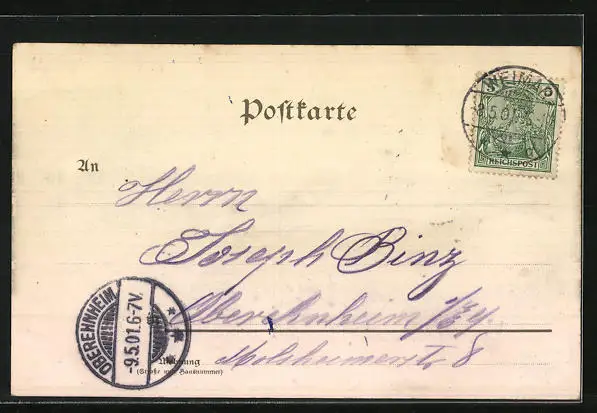 Postkarte
WEIMAR
8.5.01
REICHSPOST
An
Herrn
Joseph Binz
Oberehnheim i/Els
Molsheimerstr. 8
OBEREHNHEIM
-9.5.01.6-7V.
Wohnung
(Straße und Hausnummer)